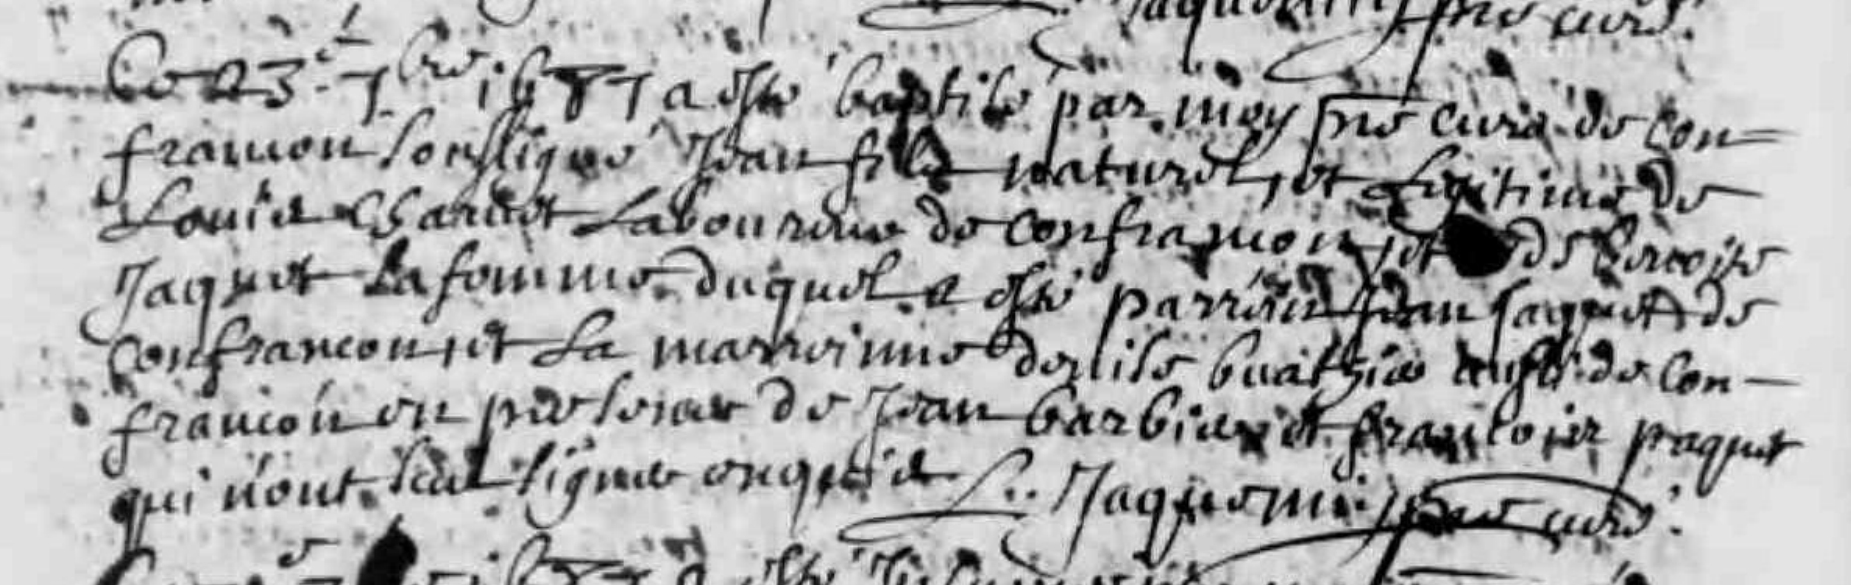 Jaquemin pnt curé.
Ce 23.e 7bre 1687 a esté baptisé par moy pnt curé de Con-
francon soussigné Jean fils naturel et legitime de
Louis Laboureur de confrancon et de benoite
Jaquet sa femme duquel a esté parrain Jean Jaquet de
confrancon et la marreinne denise de Con-
francon en presence de Jean barbier et françois paquet
qui n'ont sceu signer enquis Jaquemin pnt curé.